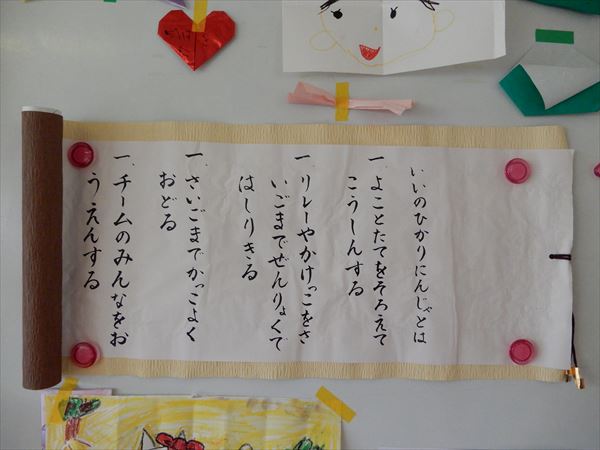 いいのひかりにんじゃとは
一、よことたてをそろえて
こうしんする
一、リレーやかけっこをさ
いごまでぜんりょくで
はしりきる
一、さいごまでかっこよく
おどる
一、チームのみんなをお
うえんする